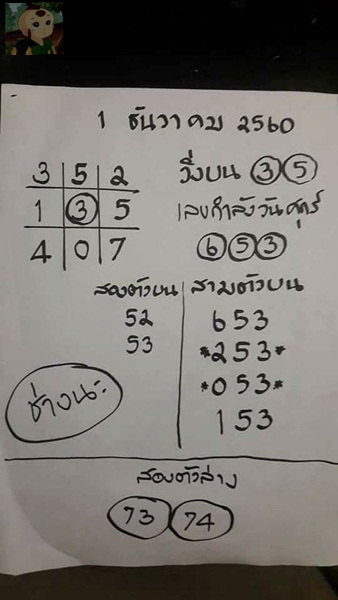 1 ธันวาคม 2560
3 5 2
1 3 5
4 0 7
วิ่งบน 3 5
เลขกำลังวันศุกร์
6 5 3
สองตัวบน
52
53
สามตัวบน
653
*253*
*053*
153
ช่างนะ
สองตัวล่าง
73 74